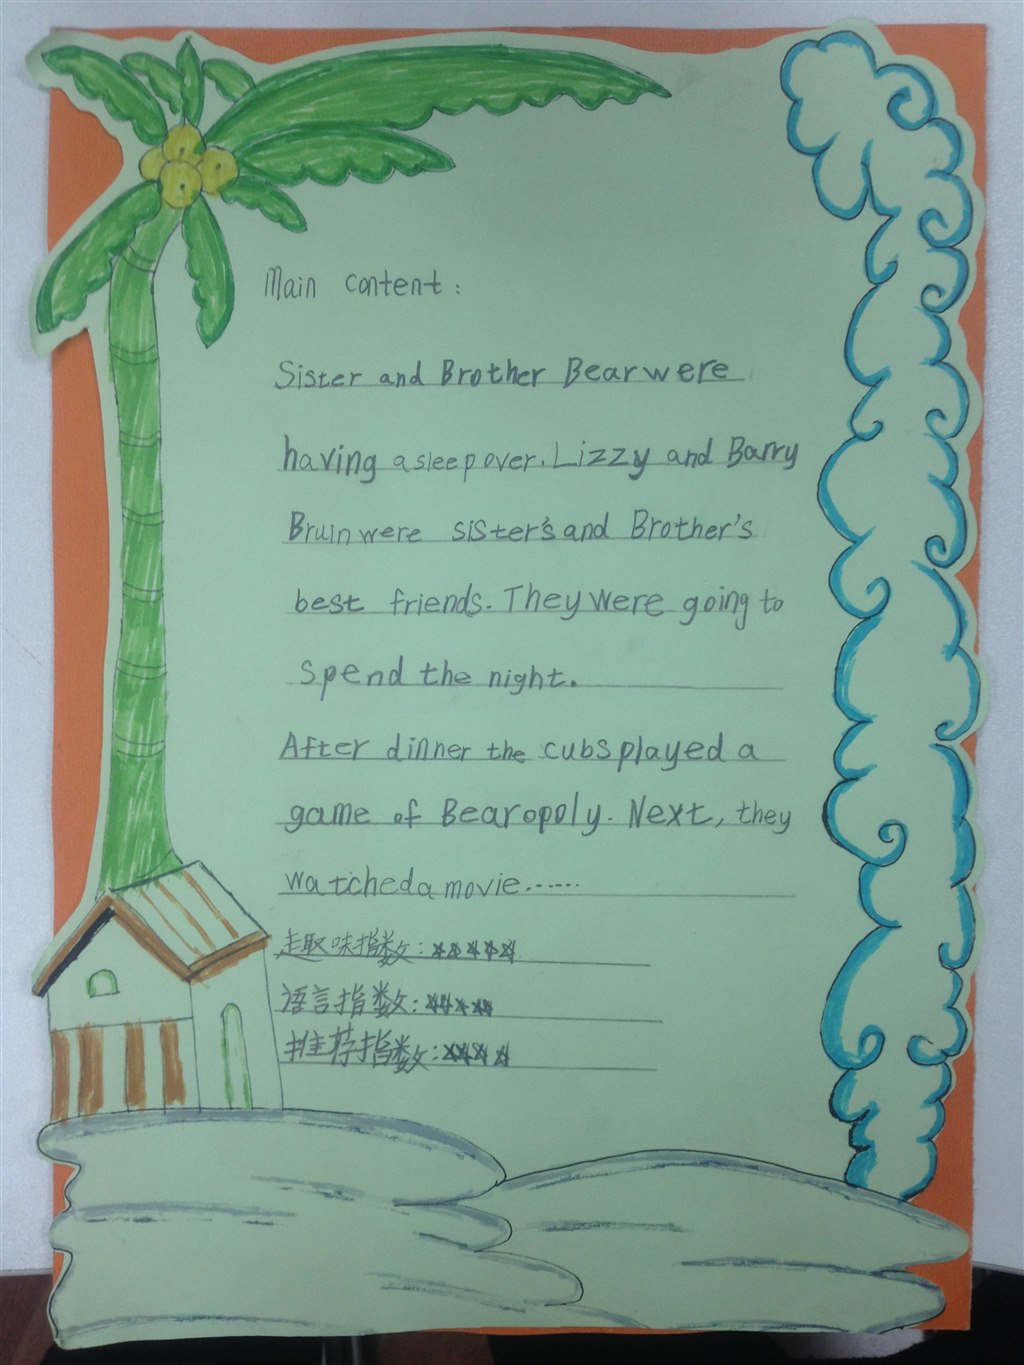 Main content:
Sister and Brother Bear were
having a sleepover. Lizzy and Barry
Bruin were sister's and Brother's
best friends. They were going to
spend the night.
After dinner the cubs played a
game of Bearopoly. Next, they
watched a movie......
趣味指数:★★★★★
语言指数:★★★★★
推荐指数:★★★★